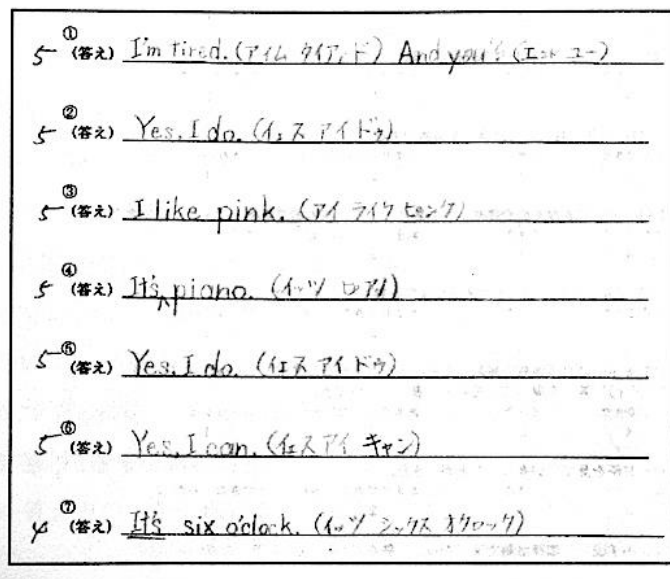 5 ① (答え) I'm tired. (アイム タイアード) And you? (エンド ユー)
5 ② (答え) Yes. I do. (イェス アイ ドゥ)
5 ③ (答え) I like pink. (アイ ライク ピンク)
5 ④ (答え) It's piano. (イッツ ピアノ)
5 ⑤ (答え) Yes. I do. (イエス アイ ドゥ)
5 ⑥ (答え) Yes, I can. (イエス アイ キャン)
4 ⑦ (答え) It's six o'clock. (イッツ シックス オクロック)